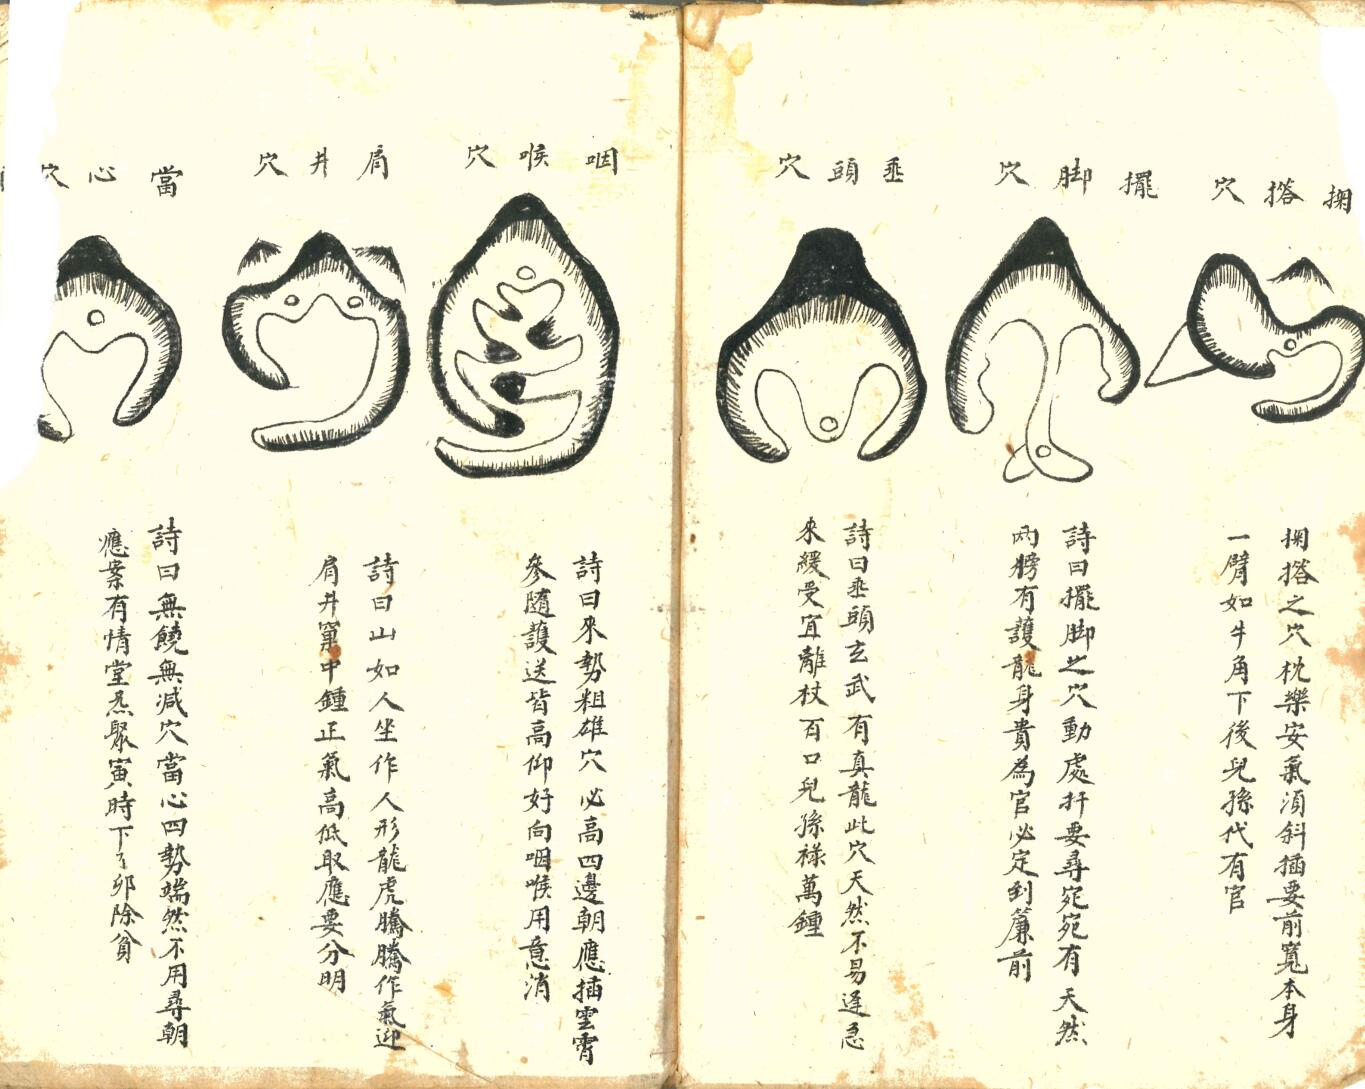 掬撘穴
掬撘之穴枕樂安氣須斜插要前寬本身
一臂如牛角下後兒孫代有官
擺脚穴
詩曰擺脚之穴動處扦要尋宛宛有天然
兩榜有護龍身貴為官必定到簾前
垂頭穴
詩曰垂頭玄武有真龍此穴天然不易逢急
來緩受宜離杖百口兒孫祿萬鍾
咽喉穴
詩曰來勢粗雄穴必高四邊朝應插雲霄
參隨護送皆高仰好向咽喉用意消
肩井穴
詩曰山如人坐作人形龍虎騰騰作氣迎
肩井窠中鍾正氣高低取應要分明
當心穴
詩曰無饒無减穴當心四勢端然不用尋朝
應案有情堂炁聚寅時下了卯除貧